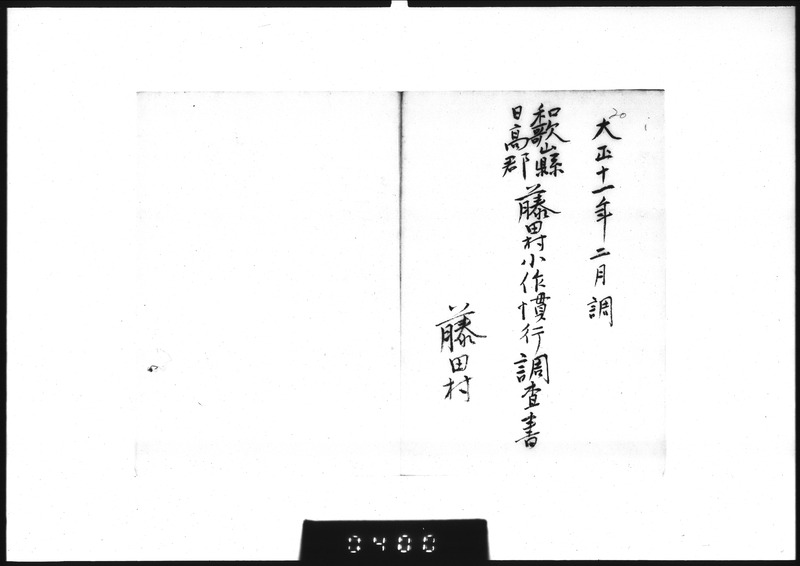 20
大正十一年二月調
和歌山縣
日高郡
藤田村小作慣行調査書
藤田村
0400